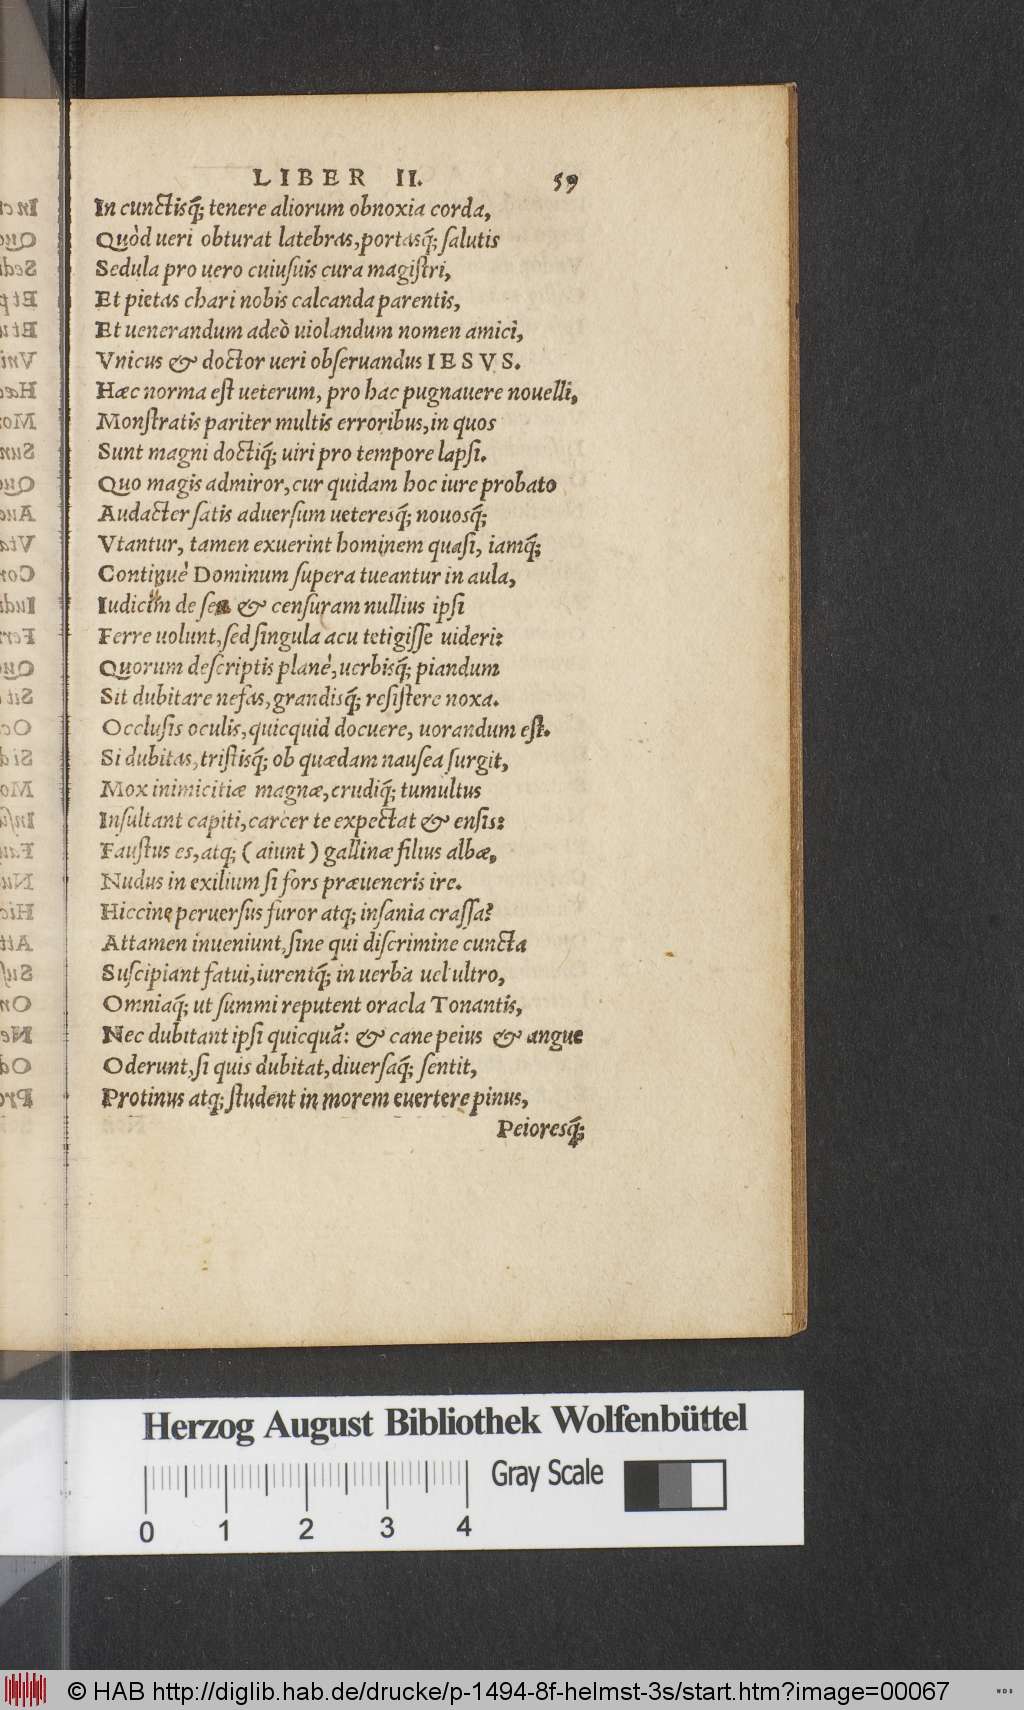 LIBER II. 59
In cunctisq́; tenere aliorum obnoxia corda,
Quòd ueri obturat latebras, portasq́; salutis
Sedula pro uero cuiusuis cura magistri,
Et pietas chari nobis calcanda parentis,
Et uenerandum adeò uiolandum nomen amici,
Vnicus & doctor ueri obseruandus IESVS.
Hæc norma est ueterum, pro hac pugnauere nouelli,
Monstratis pariter multis erroribus, in quos
Sunt magni doctiq́; uiri pro tempore lapsi.
Quo magis admiror, cur quidam hoc iure probato
Audacter satis aduersum ueteresq́; nouosq́;
Vtantur, tamen exuerint hominem quasi, iamq́;
Continuè Dominum supera tueantur in aula,
Iudicim de se & censuram nullius ipsi
Ferre uolunt, sed singula acu tetigisse uideri:
Quorum descriptis planè, uerbisq́; piandum
Sit dubitare nefas, grandisq́; resistere noxa.
Occlusis oculis, quicquid docuere, uorandum est.
Si dubitas, tristisq́; ob quædam nausea surgit,
Mox inimicitiæ magnæ, crudiq́; tumultus
Insultant capiti, carcer te expectat & ensis:
Faustus es, atq; (aiunt) gallinæ filius albæ,
Nudus in exilium si fors præueneris ire.
Hiccine peruersus furor atq; insania crassa?
Attamen inueniunt, sine qui discrimine cuncta
Suscipiant fatui, iurentq́; in uerba uel ultro,
Omniaq́; ut summi reputent oracla Tonantis,
Nec dubitant ipsi quicquā: & cane peius & angue
Oderunt, si quis dubitat, diuersaq́; sentit,
Protinus atq; student in morem euertere pinus,
Peioresq́;
Herzog August Bibliothek Wolfenbüttel
Gray Scale
0 1 2 3 4
© HAB http://diglib.hab.de/drucke/p-1494-8f-helmst-3s/start.htm?image=00067